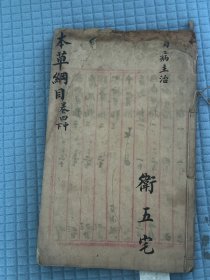 百病主治
本草綱目卷四中下
衛五宅